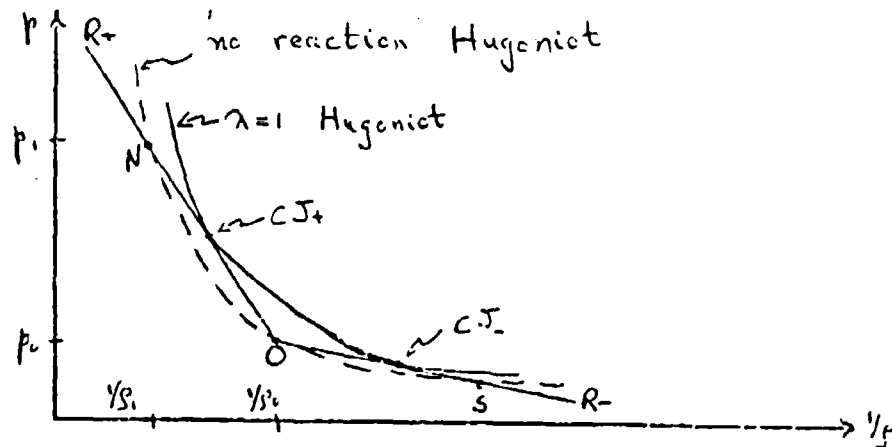 p
R+
'no reaction' Hugoniot
λ=1 Hugoniot
p₁
N
CJ+
CJ-
p₀
O
S
1/ρ₁
1/ρ₀
R-
1/ρ